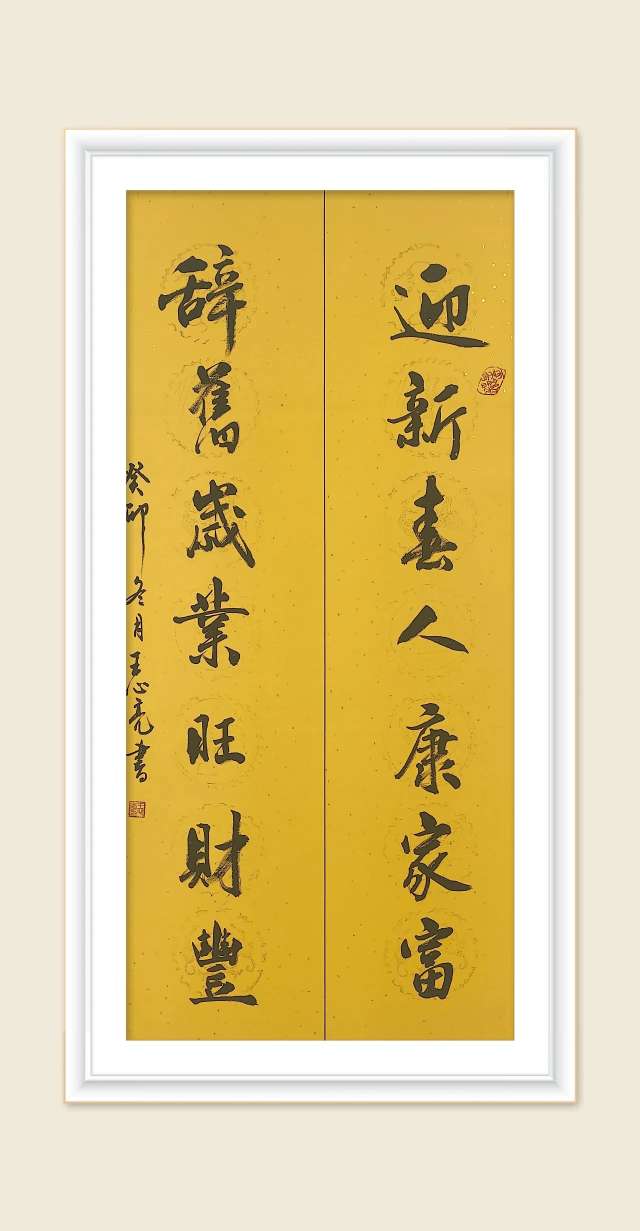 迎新春人康家富
辞舊歲業旺財豐
癸卯冬月王心亮書